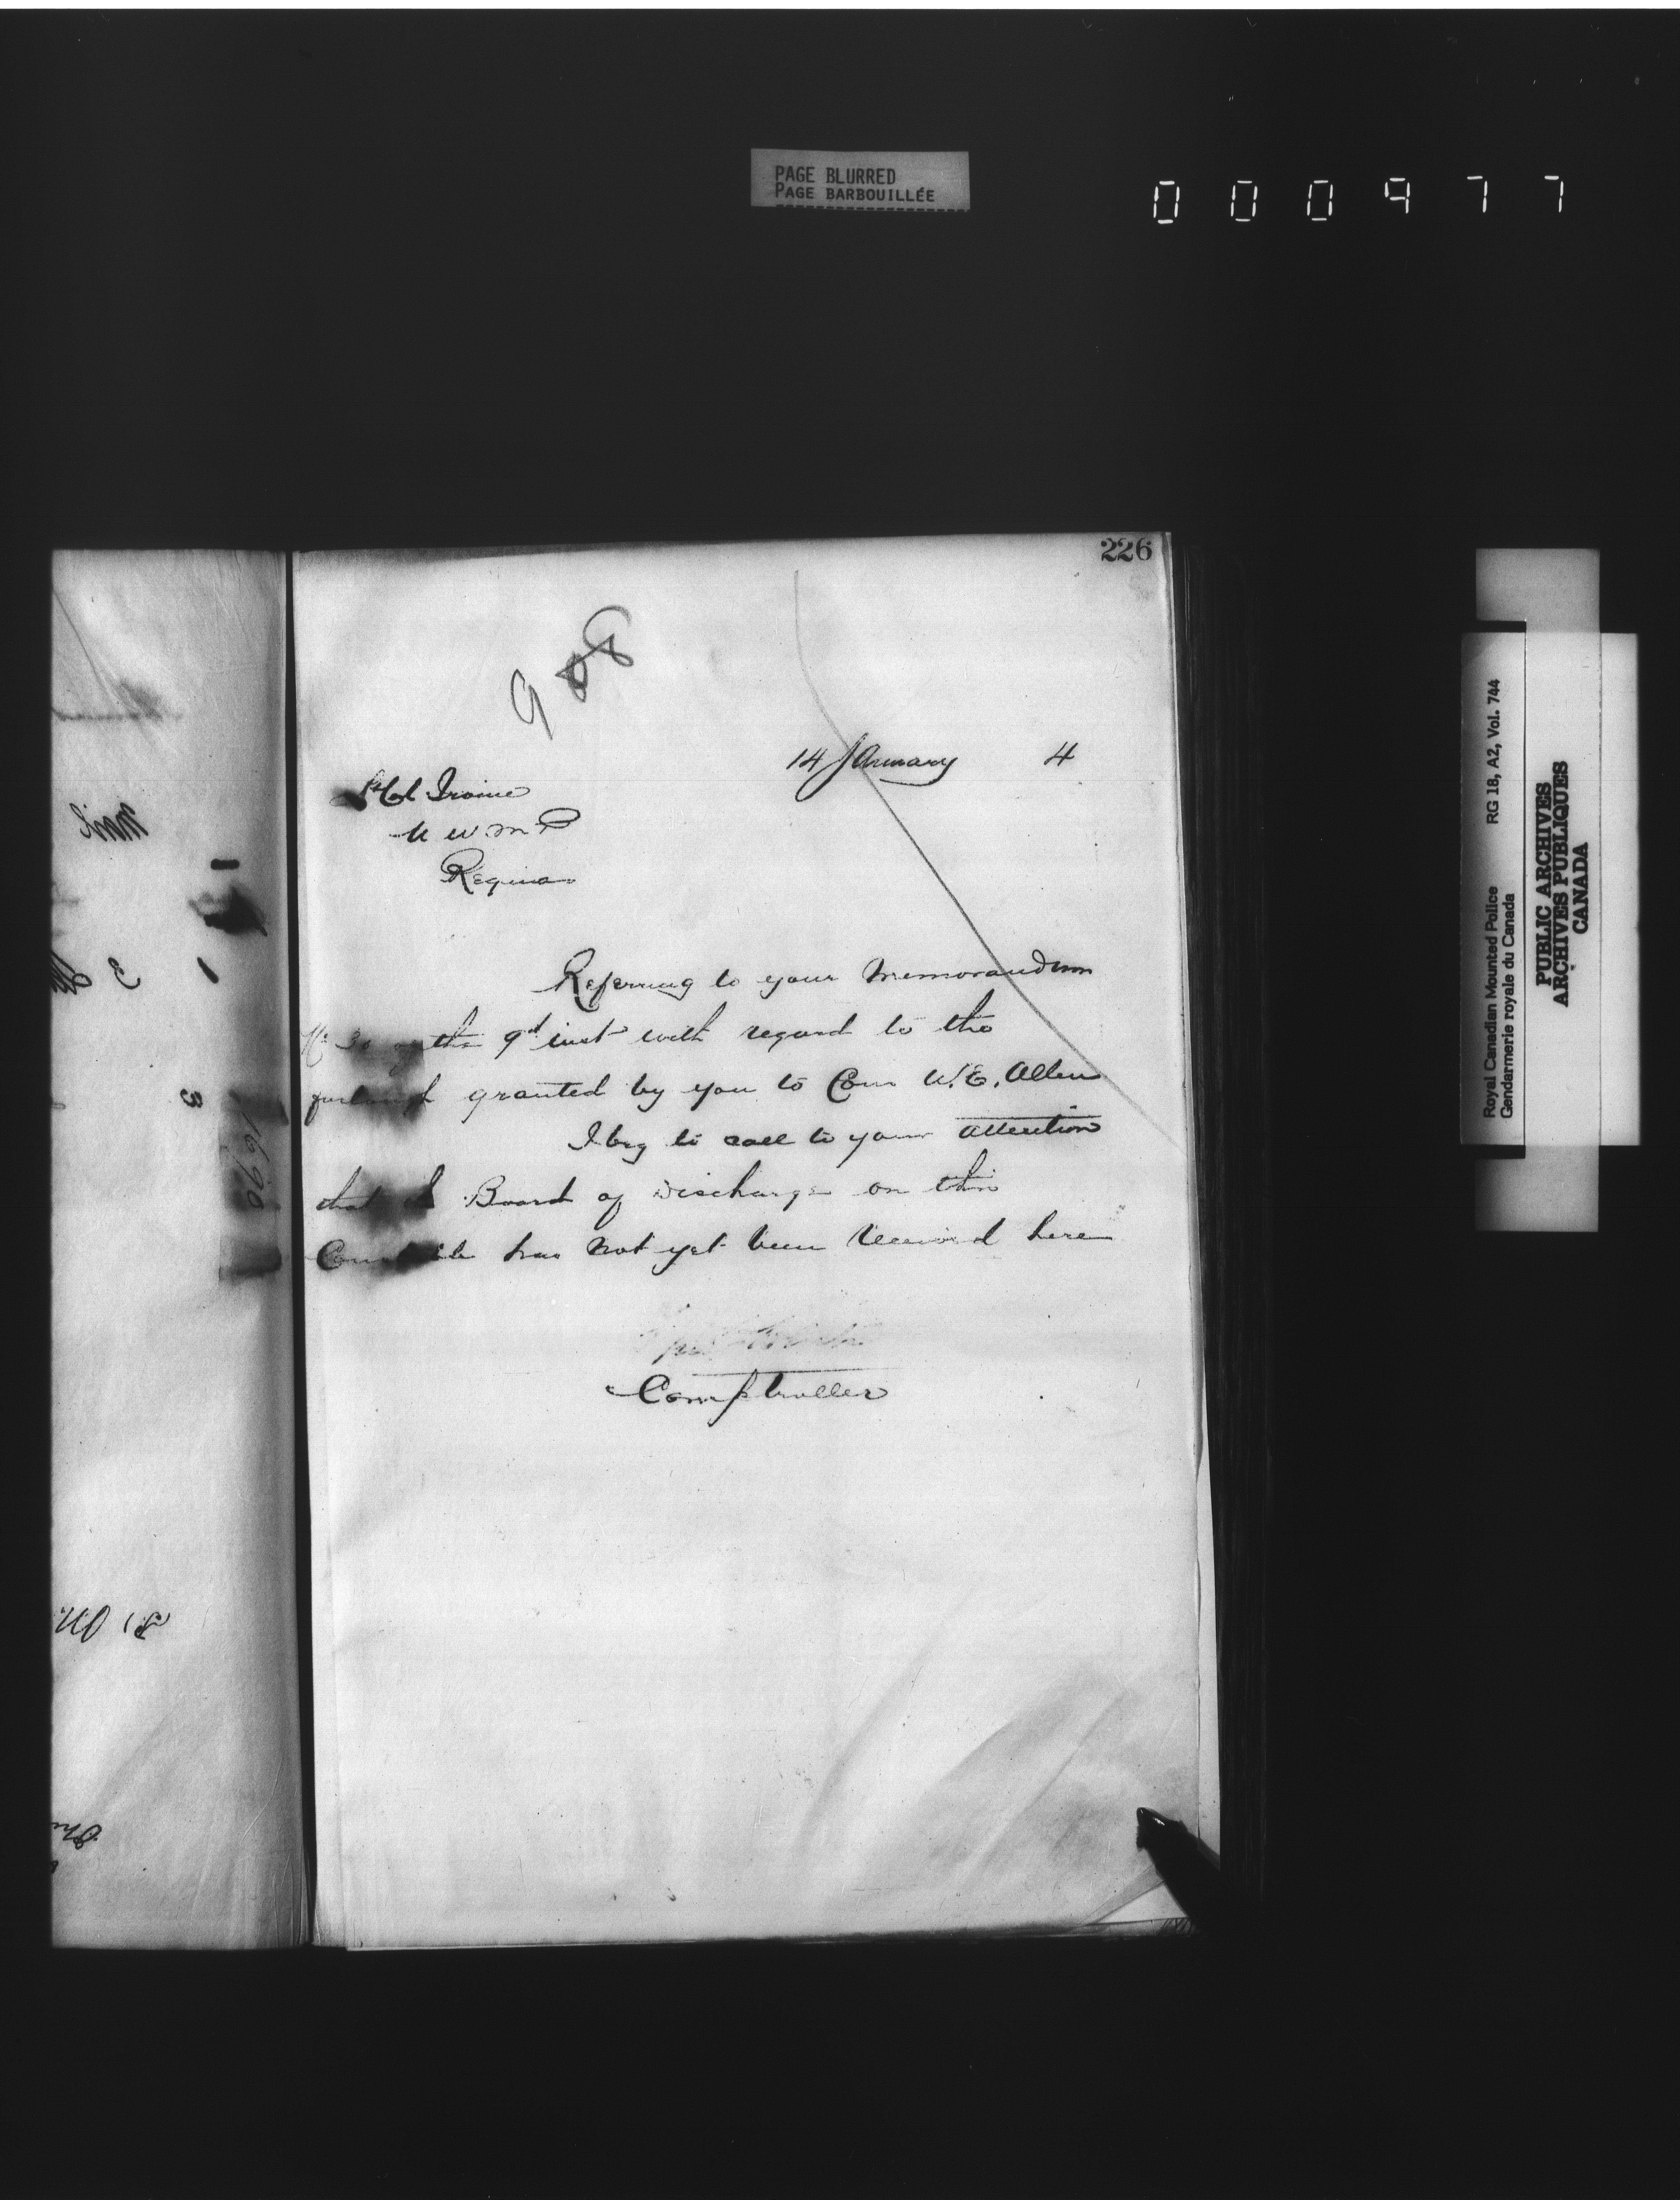 PAGE BLURRED
PAGE BARBOUILLÉE
000977
226
908
14 January 4
Col Irvine
N W M P
Regina
Referring to your Memorandum
the 9th inst with regard to the
furlough granted by you to Con W. E. Allen
I beg to call to your attention
that Board of Discharge on this
Constable has not yet been received here
Comptroller
1690
Royal Canadian Mounted Police RG 18, A2, Vol. 744
Gendarmerie royale du Canada
PUBLIC ARCHIVES
ARCHIVES PUBLIQUES
CANADA